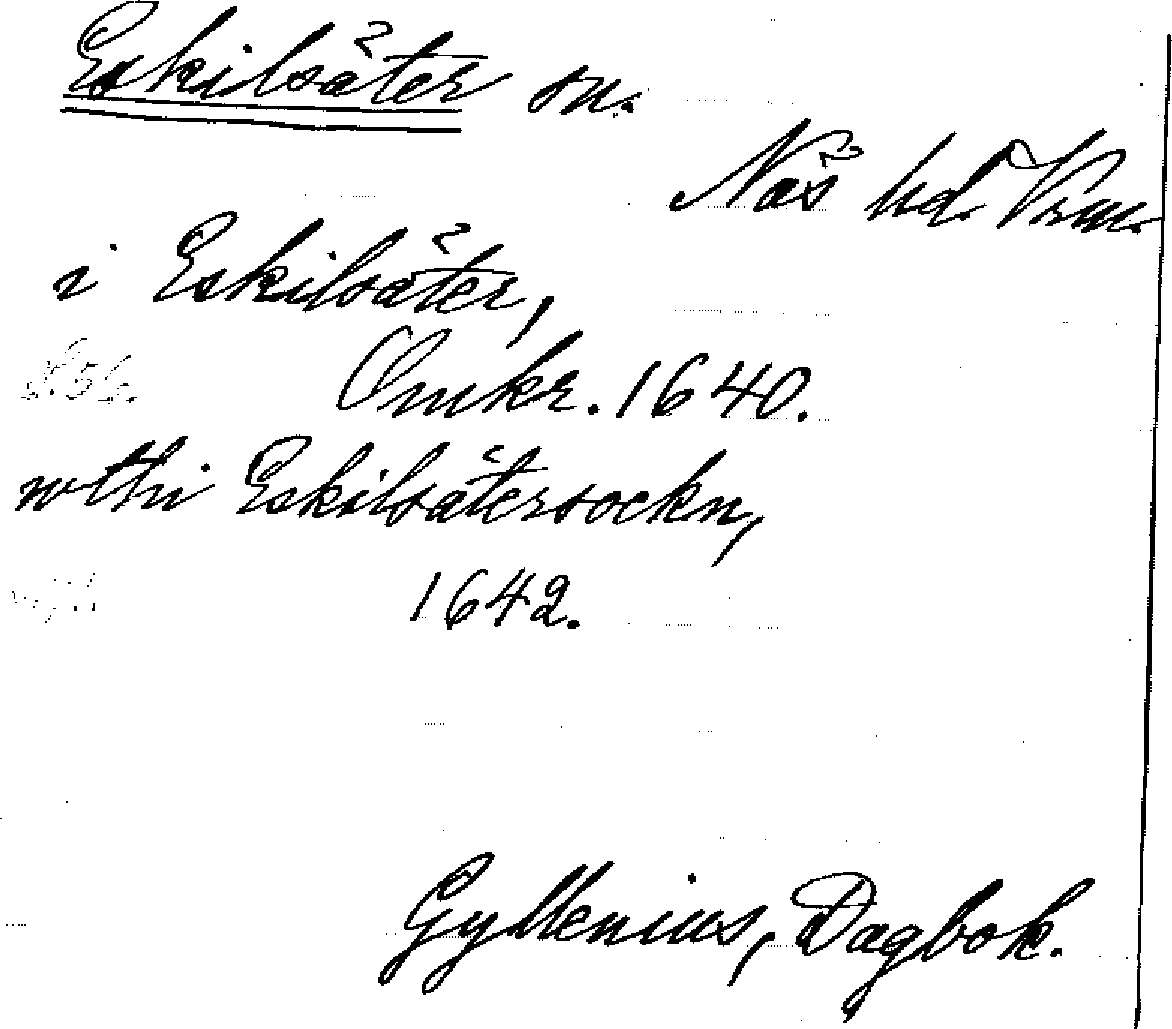 Eskilsäter sn.
Näs hd. Vrm.
i Eskilsäter,
s. 56. Omkr. 1640.
wthi Eskilsätersockn,
1642.
Gyllenius, Dagbok.